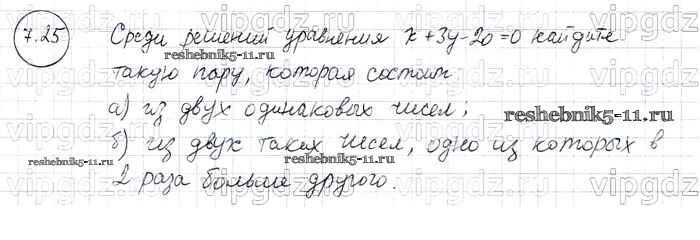 7.25 Среди решений уравнения x+3y-20=0 найдите
такую пару, которая состоит
а) из двух одинаковых чисел;
б) из двух таких чисел, одно из которых в
2 раза больше другого.
reshebnik5-11.ru
reshebnik5-11.ru
reshebnik5-11.ru
reshebnik5-11.ru
vipgdz